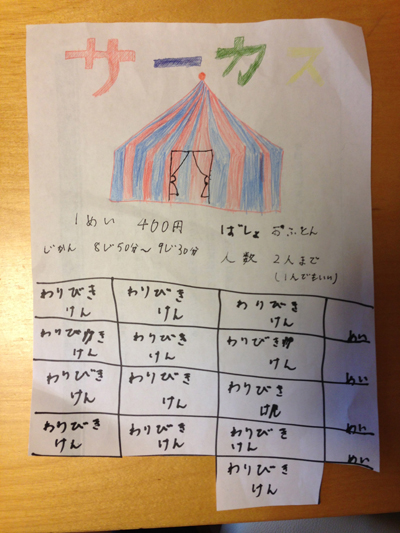 サーカス
1めい 400円
ばしょ おふとん
じかん 8じ50分〜9じ30分
人数 2人まで
(1人でもいい)
わりびき
けん
わりびき
けん
わりびき
けん
めい
わりびき
けん
わりびき
けん
わりびき
けん
めい
わりびき
けん
わりびき
けん
わりびき
けん
めい
わりびき
けん
わりびき
けん
わりびき
けん
めい
わりびき
けん